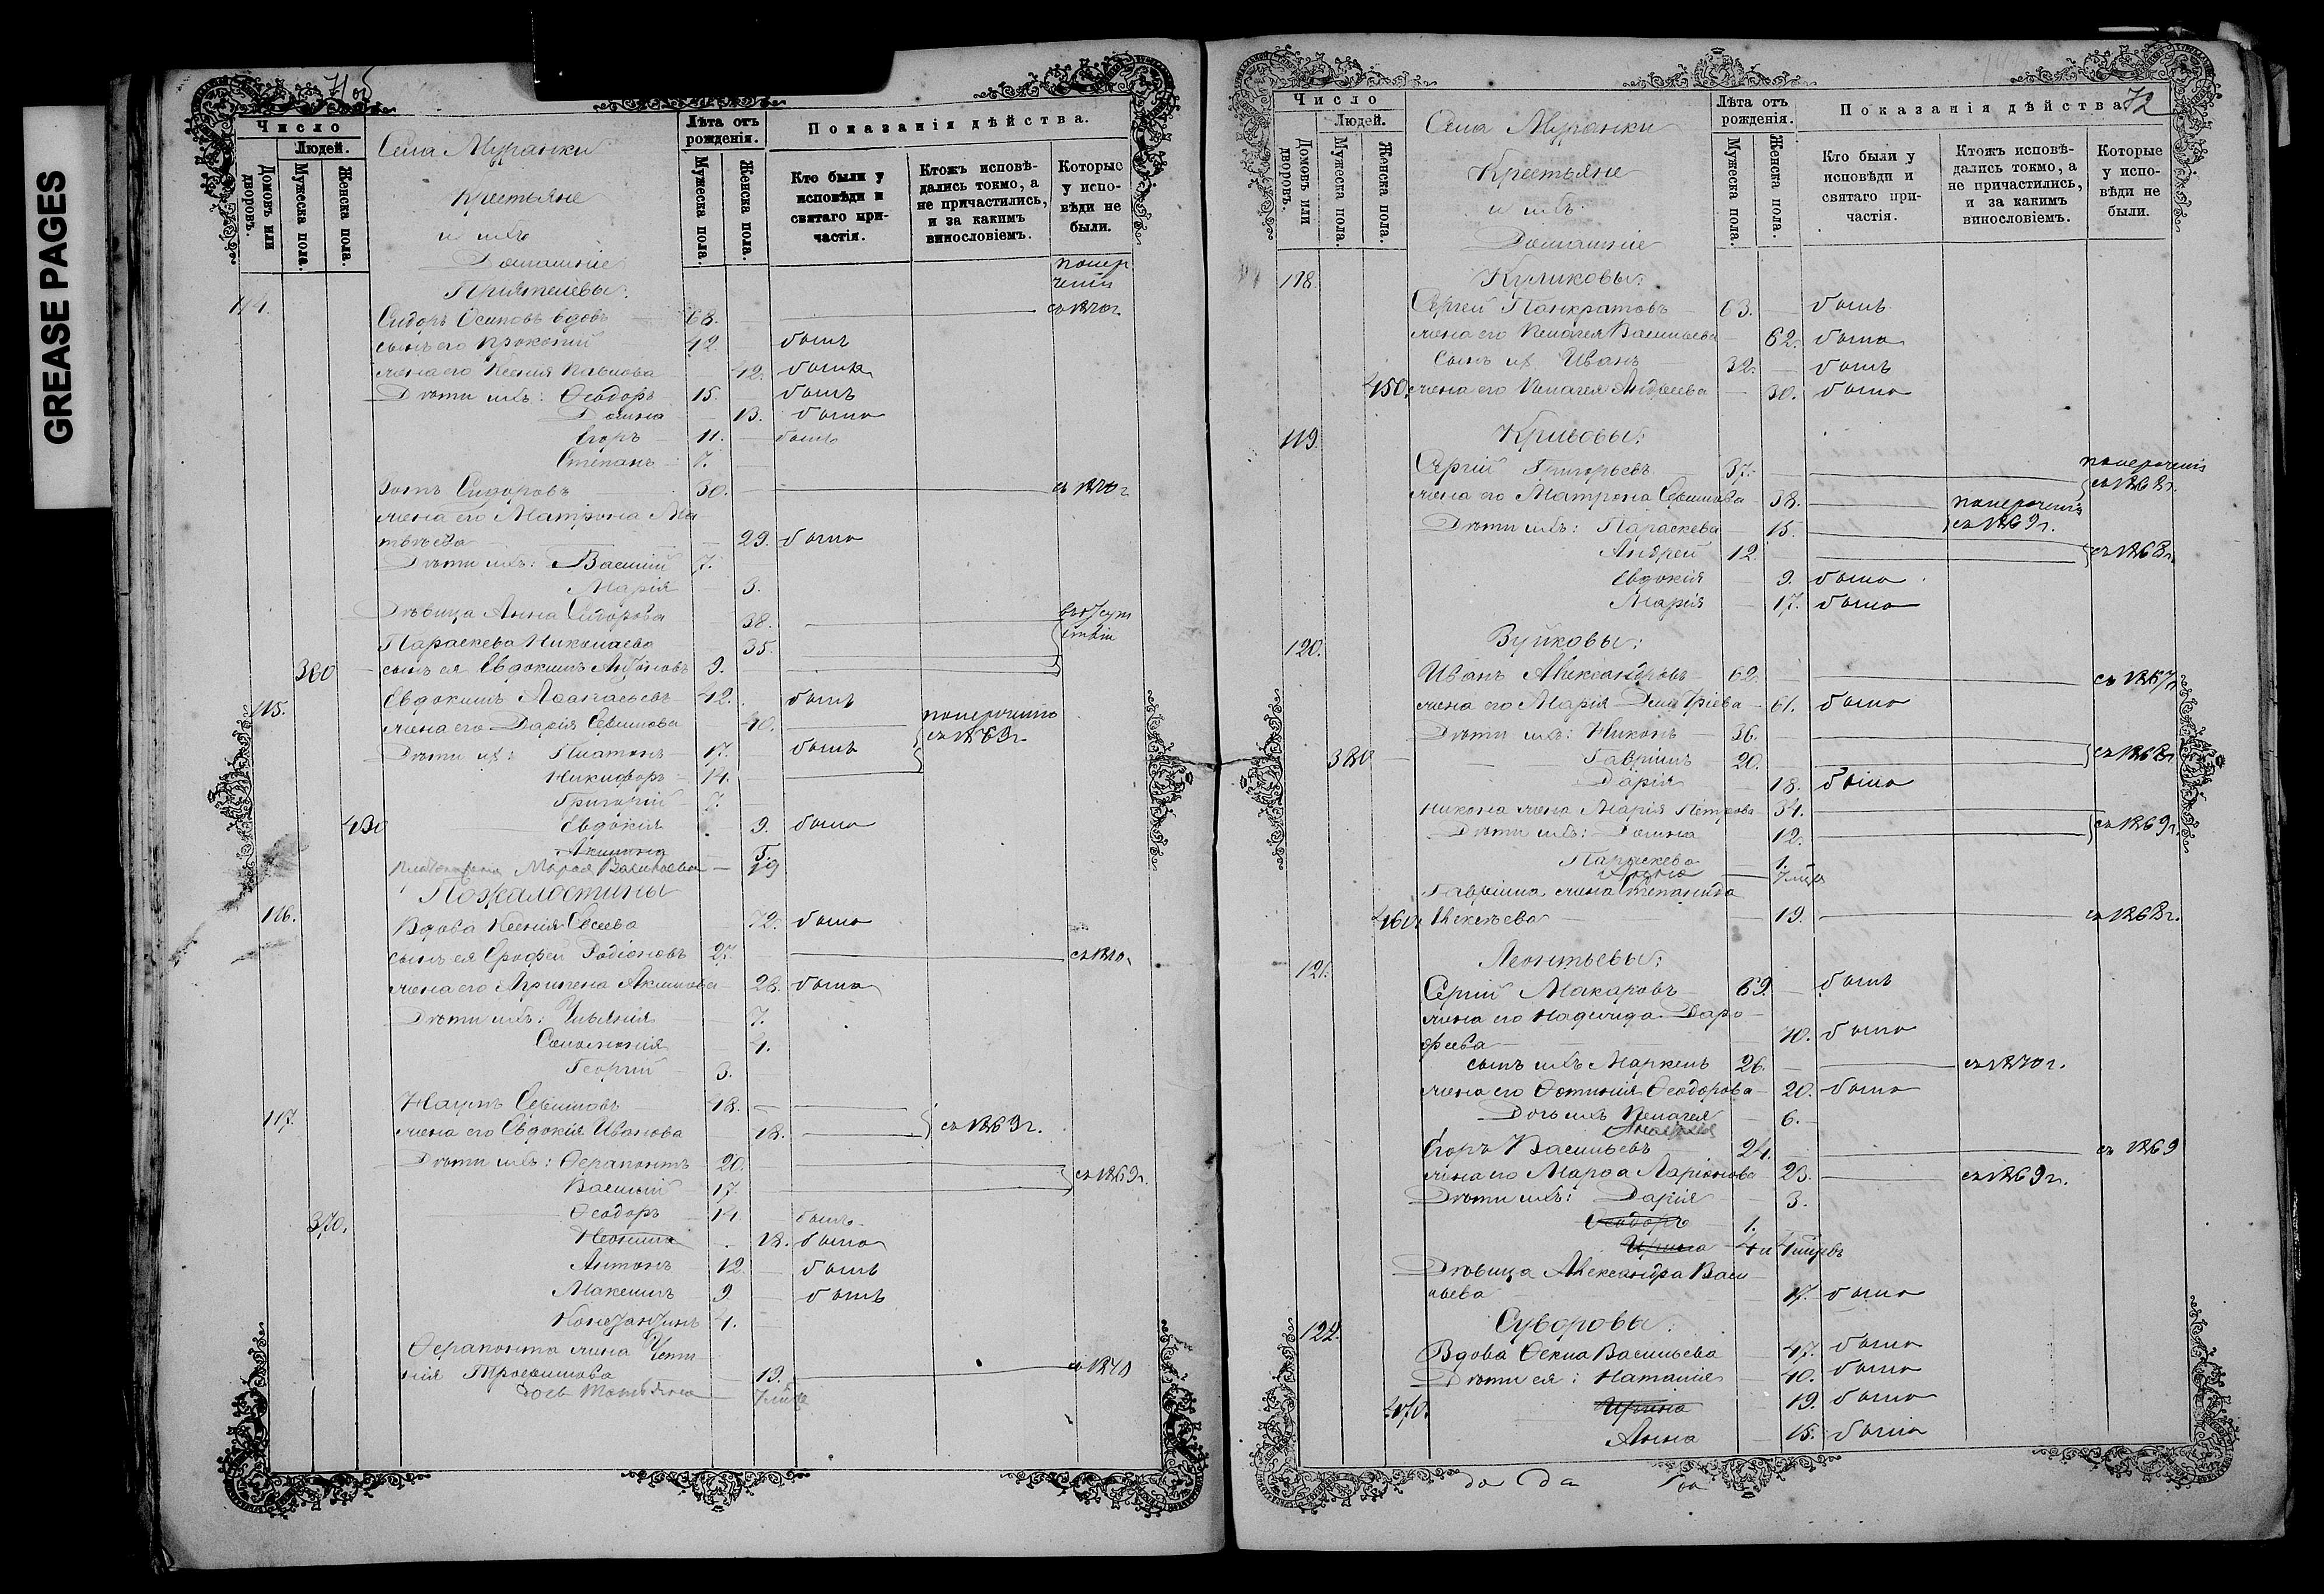 GREASE PAGES
71 об
Число
Людей.
Домовъ или дворовъ.
Мужеска пола.
Женска пола.
Села Муранки
Крестьяне
и ихъ
Домашніе
Лѣта отъ рожденія.
Мужеска пола.
Женска пола.
Показанія дѣйства.
Кто были у исповѣди и святаго при-частія.
Ктожъ исповѣ-дались токмо, а не причастились, и за какимъ винословіемъ.
Которые у испо-вѣди не были.
114. Приятелевы:
Сидоръ Осиповъ вдовъ 68. съ 1870г.
сынъ его Прокопій 42. былъ
жена его Ксенія Павлова 42. была
Дѣти ихъ: Ѳеодоръ 15. былъ
Домна 13. была
Егоръ 11. былъ
Степанъ 7.
Сидоровъ 30. съ 1870г
жена его Матрона Ма-
твѣева 29. была
Дѣти ихъ: Василій 7.
Марія 3.
Дѣвица Анна Сидорова 38.
Параскева Николаева 35.
360 сынъ ея Евдокимъ 9.
115. Евдокимъ Аѳанасьевъ 42. былъ
жена его Дарія Севимова 40. съ 1869г.
Дѣти их: Платонъ 17. былъ
Никифоръ 14.
Григорій 7.
430 Евдокія 9. была
Акилина
Марѳа Васильева 19
Пожалостины
116. Вдова Ксенія Евсеева 72. была
сынъ ея Ерофей Родіоновъ 27. съ 1870.
жена его Агрипена Акимова 28. была
Дѣти ихъ: Ульянія 7.
Соломонія 4.
Георгій 3.
117. Наумъ Севимовъ 48.
жена его Евдокія Иванова 48. съ 1869г.
Дѣти ихъ: Ѳерапонтъ 20.
Василій 17. съ 1869г.
370. Ѳеодоръ 14 былъ
Неонила 18. была
Антонъ 12 былъ
Максимъ 9 былъ
Константинъ 4.
Ѳерапонта жена Усти-
нія Трофимова 19. съ 1870
дочь Татьяна
72
Число
Людей.
Домовъ или дворовъ.
Мужеска пола.
Женска пола.
Села Муранки
Крестьяне
и ихъ
Домашніе
Лѣта отъ рожденія.
Мужеска пола.
Женска пола.
Показанія дѣйства.
Кто были у исповѣди и святаго при-частія.
Ктожъ исповѣ-дались токмо, а не причастились, и за какимъ винословіемъ.
Которые у испо-вѣди не были.
118. Куликовы:
Сергей Панкратовъ 63. былъ
жена его Пелагея Васильева 62. была
Сынъ их Иванъ 32. былъ
450. жена его Пелагея Андреева 30. была
119. Кривовы:
Сергій Григорьевъ 37. съ 1868г.
жена его Матрона Севимова 38.
Дѣти ихъ: Параскева 15. съ 1869г.
Андрей 12. съ 1868г.
Евдокія 9. была
Марія 17. была
120. Вуйковы:
Иванъ Александровъ 62. съ 1867г
жена его Марія Димитріева 61. была
Дѣти ихъ: Никонъ 36.
380 Гавріилъ 20. съ 1868г
Дарія 18. была
Никона жена Марія Петрова 34.
Дѣти ихъ: Домна 12. съ 1869г.
Параскева 1.
Гавріила жена Степанида
460. Алексѣева 19. съ 1868г.
121. Леонтьевы:
Сергій Макаровъ 69. былъ
жена его Надежда Доро-
феева 70. была
сынъ ихъ Маркелъ 26. съ 1870г.
жена его Ѳотинія Ѳеодорова 20. была
Дочь ихъ Пелагея 6.
Егоръ Васильевъ 24. съ 1869
жена его Марѳа Ларіонова 23. съ 1869г.
Дѣти ихъ: Дарія 3.
Ѳеодоръ 1.
Ирина
Дѣвица Александра Васи-
льева 17. была
122. Суворовы:
Вдова Ѳекла Васильева 47. была
Дѣти ея: Наталія 40. была
470. Ирина 19. была
Анна 15. была